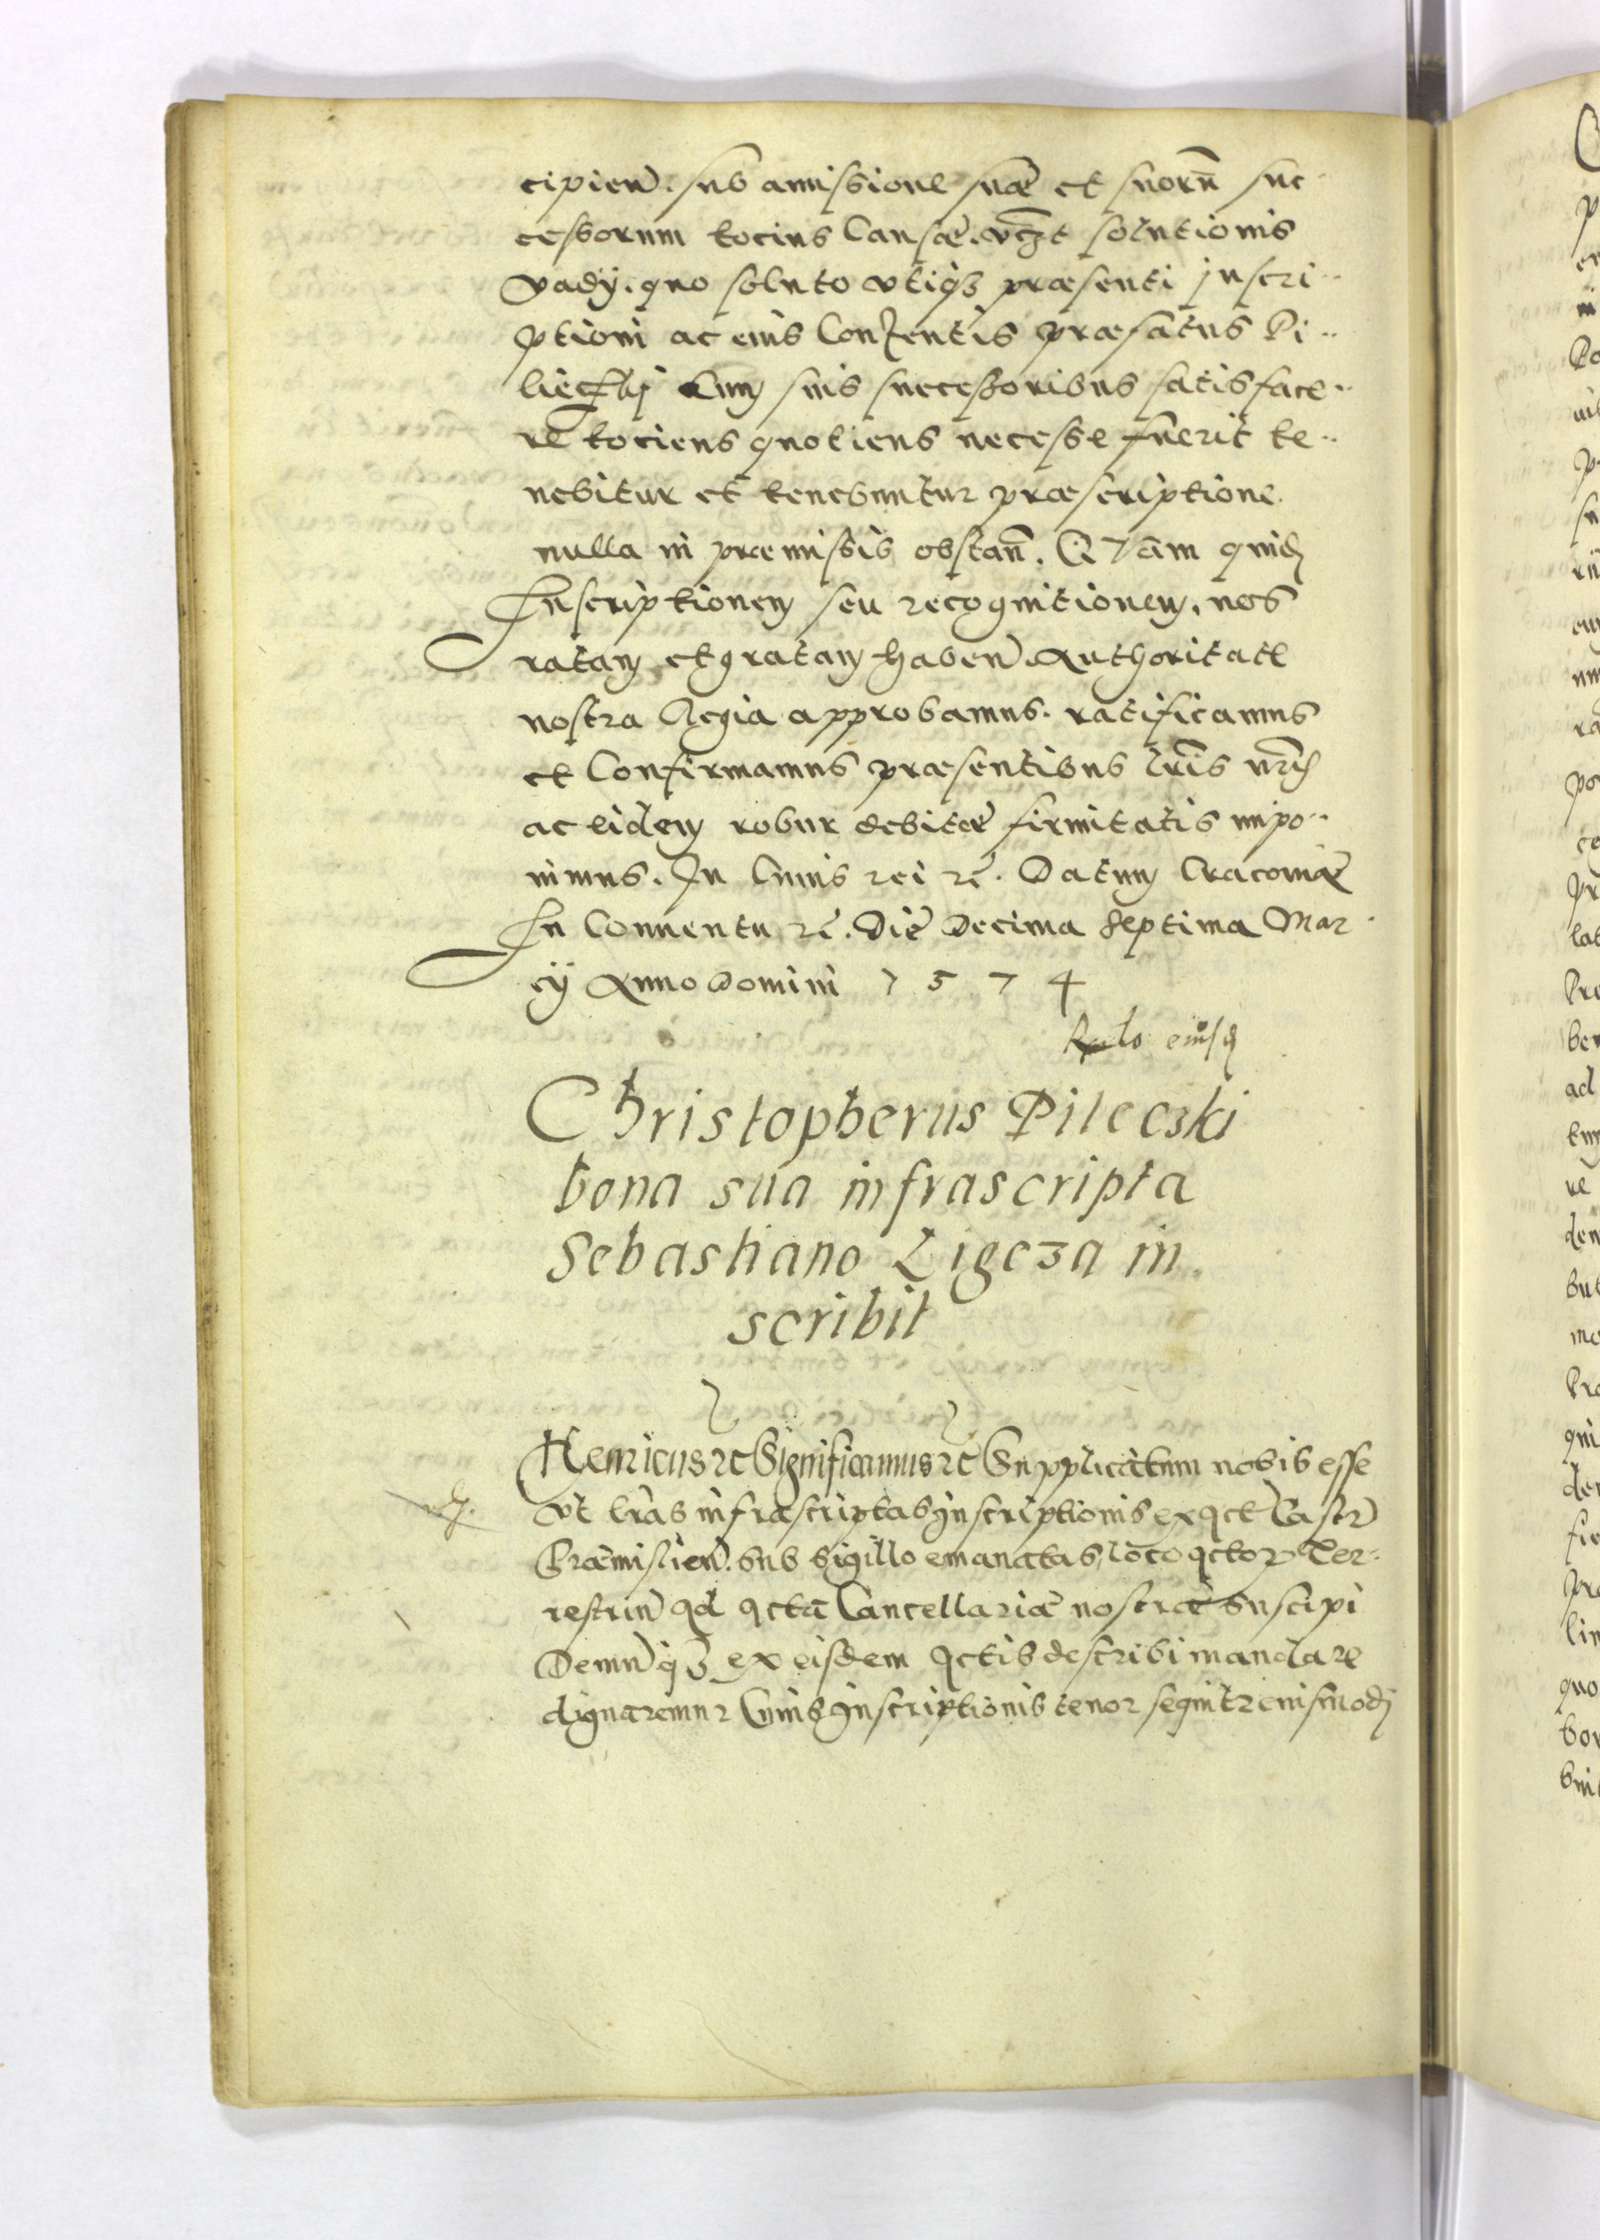 cipien̄. sub amissione suæ et suorū suc-
cessorum tocius Causæ. vz̄t solutionis
vadÿ. quo soluto vtiqȝ præsenti inscri-
ptioni ac eius Contentis præfatus Pi-
lieczkÿ Cum suis successoribus satisface-
re tociens quotiens necesse fuerit te-
nebitur et tenebuntur præscriptione
nulla in præmissis obstan̄. QVam quid
Inscriptionem seu recognitionem. nos
ratam et gratam haben̄. Authoritate
nostra Regia approbamus. ratificamus
et Confirmamus præsentibus lr̄is nr̄is
ac eidem robur debitæ firmitatis impo-
nimus. In Cuius rei rc̄. Datum Cracoviæ
In Conventu rc̄. Die Decima septima Mar
cÿ Anno Domini 1574
Rel̄o eiusd
Christopherus Pileczki
bona sua infrascripta
Sebastiano Ligeza in
scribit
Henricus rc̄ Significamus rc̄ Supplicatum nobis esse
vt lr̄as infrascriptas Inscriptionis ex Act Castr̄
Præmislien̄. sub sigillo emanatas, loco Actor Ter-
restriu̅ ad Acta Cancellariæ nostræ suscipi
Demu̅qȝ ex eisdem Actis describi mandare
dignaremur Cuius Inscriptionis tenor sequitr eiusmodi